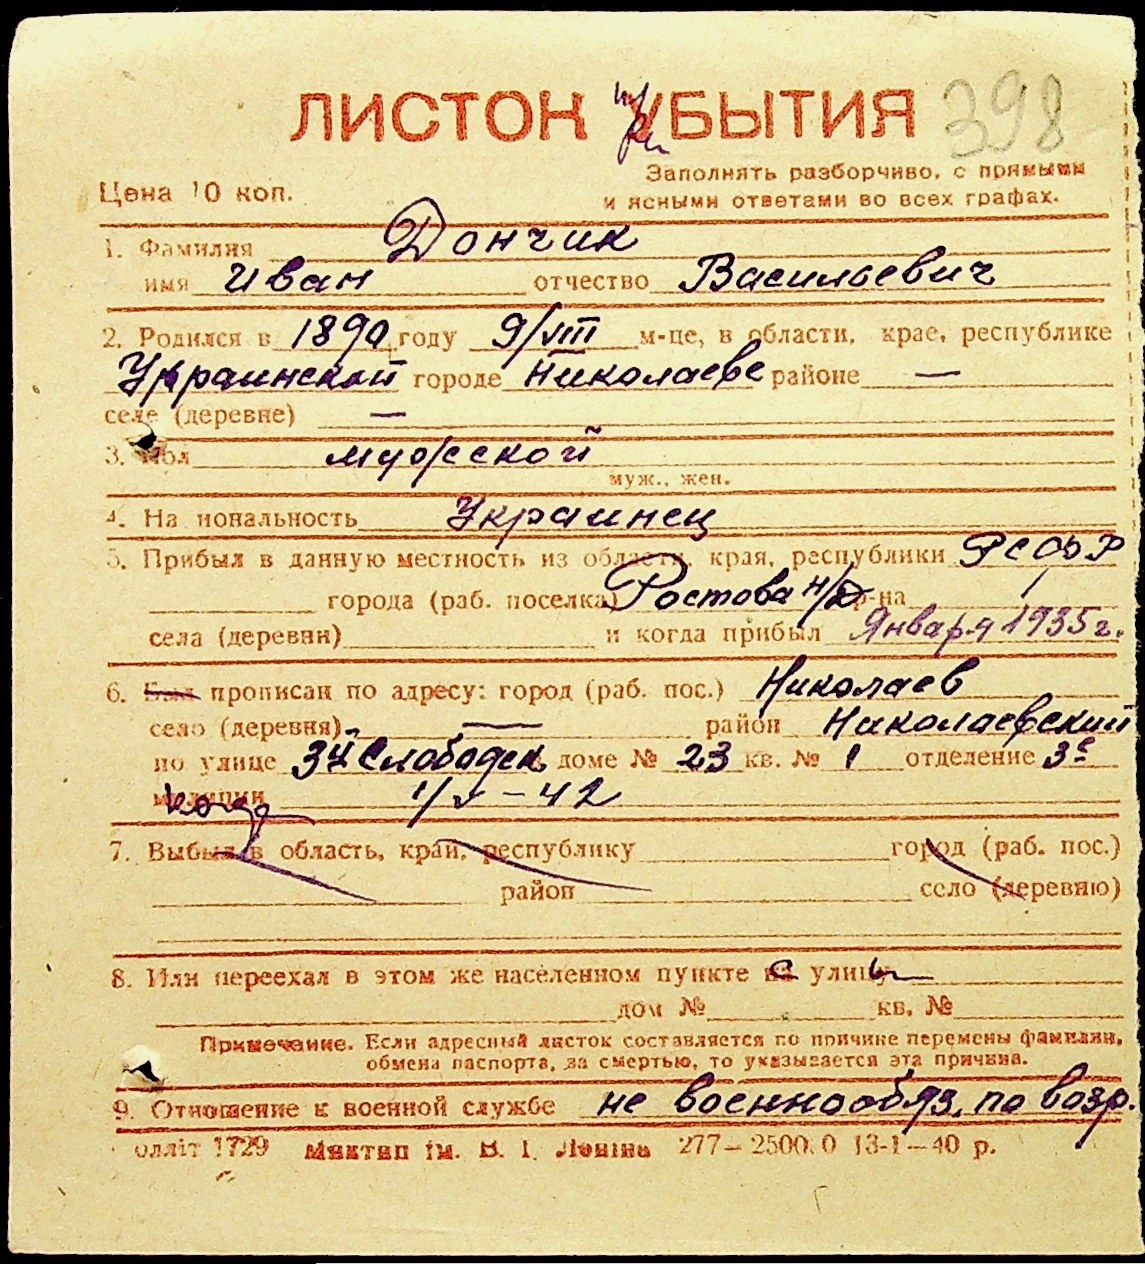 398
ЛИСТОК УБЫТИЯ
при
Заполнять разборчиво, с прямыми
Цена 10 коп.
и ясными ответами во всех графах.
1. Фамилия Дончик
имя Иван отчество Васильевич
2. Родился в 1890 году 9/VIII м-це, в области, крае, республике
Украинской городе Николаеве районе —
селе (деревне) —
3. Пол мужской
муж., жен.
4. Национальность Украинец
5. Прибыл в данную местность из области, края, республики РСФСР
города (раб. поселка) Ростова н/Д р-на
села (деревни) и когда прибыл Января 1935 г.
6. Был прописан по адресу: город (раб. пос.) Николаев
село (деревня) — район Николаевский
по улице 3й Слободск. доме № 23 кв. № 1 отделение 3е
милиции когда 1/V-42
7. Выбыл в область, край, республику город (раб. пос.)
район село (деревню)
8. Или переехал в этом же населенном пункте с улицы
дом № кв. №
Примечание. Если адресный листок составляется по причине перемены фамилии,
обмена паспорта, за смертью, то указывается эта причина.
9. Отношение к военной службе не военнообяз. по возр.
олліт 1729 Миктип ім. В. І. Леніна 277— 13-1—40 р.